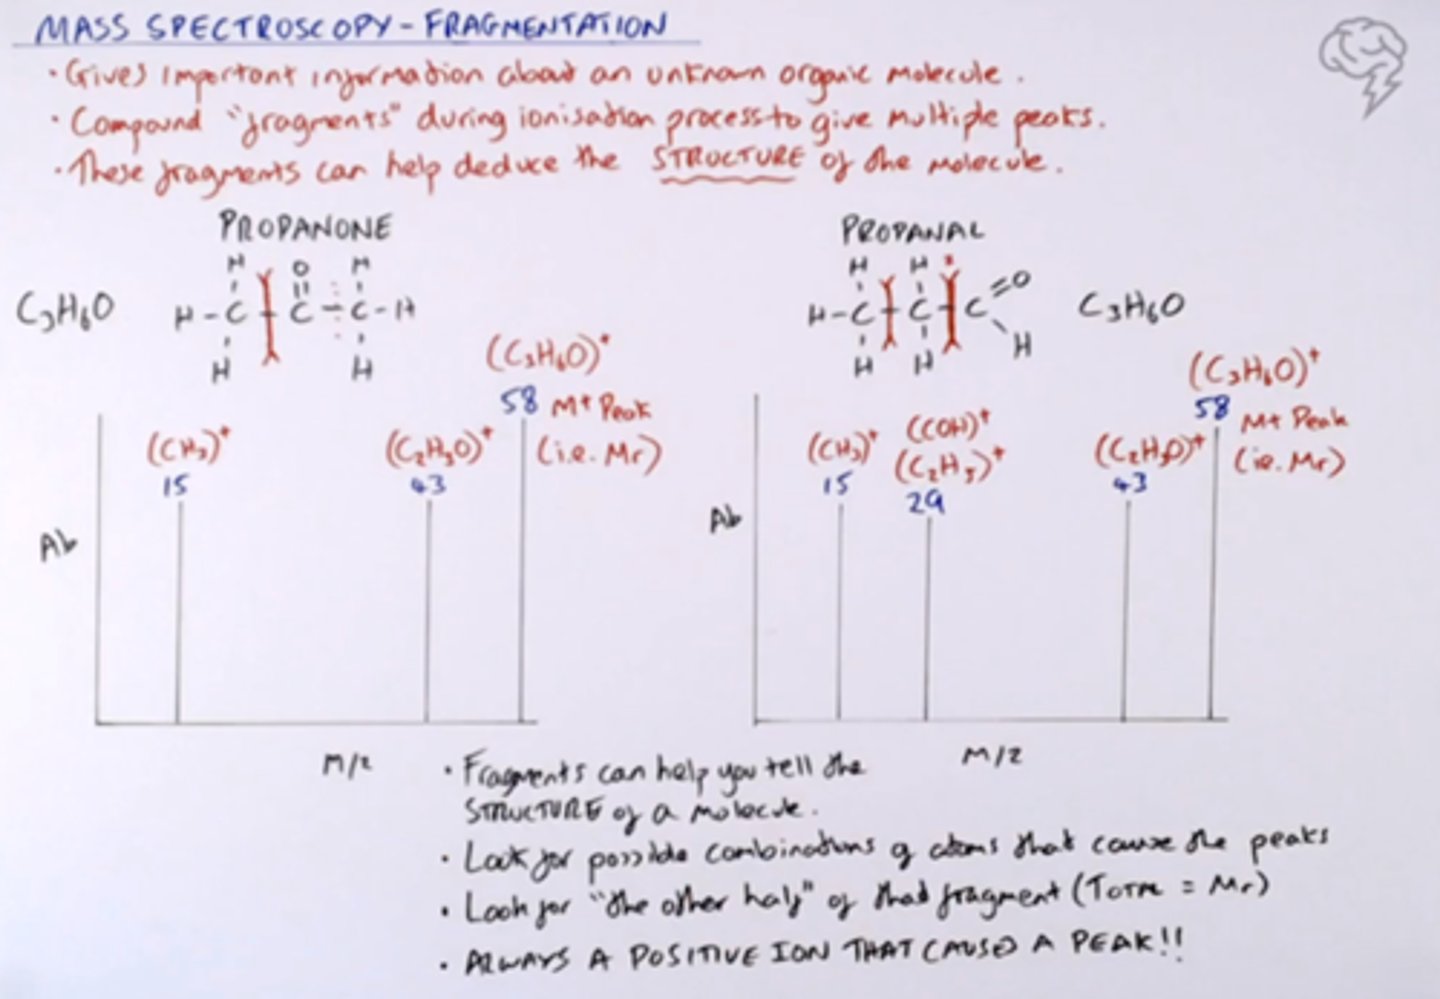 MASS SPECTROSCOPY - FRAGMENTATION
• Gives important information about an unknown organic molecule.
• Compound "fragments" during ionisation process to give multiple peaks.
• These fragments can help deduce the STRUCTURE of the molecule.
PROPANONE
C₃H₆O
H O H
H-C-C-C-H
H H
(C₃H₆O)⁺
58 M+ Peak
(i.e. Mr)
(CH₃)⁺
15
(C₂H₃O)⁺
43
Ab
M/Z
PROPANAL
H H
H-C-C-C=O
H H H
C₃H₆O
(C₃H₆O)⁺
58 M+ Peak
(ie. Mr)
(CH₃)⁺
15
(COH)⁺
(C₂H₅)⁺
29
(C₂H₃O)⁺
43
Ab
M/Z
• Fragments can help you tell the
STRUCTURE of a molecule.
• Look for possible combinations of atoms that cause the peaks
• Look for "the other half" of that fragment (Total = Mr)
• ALWAYS A POSITIVE ION THAT CAUSED A PEAK!!